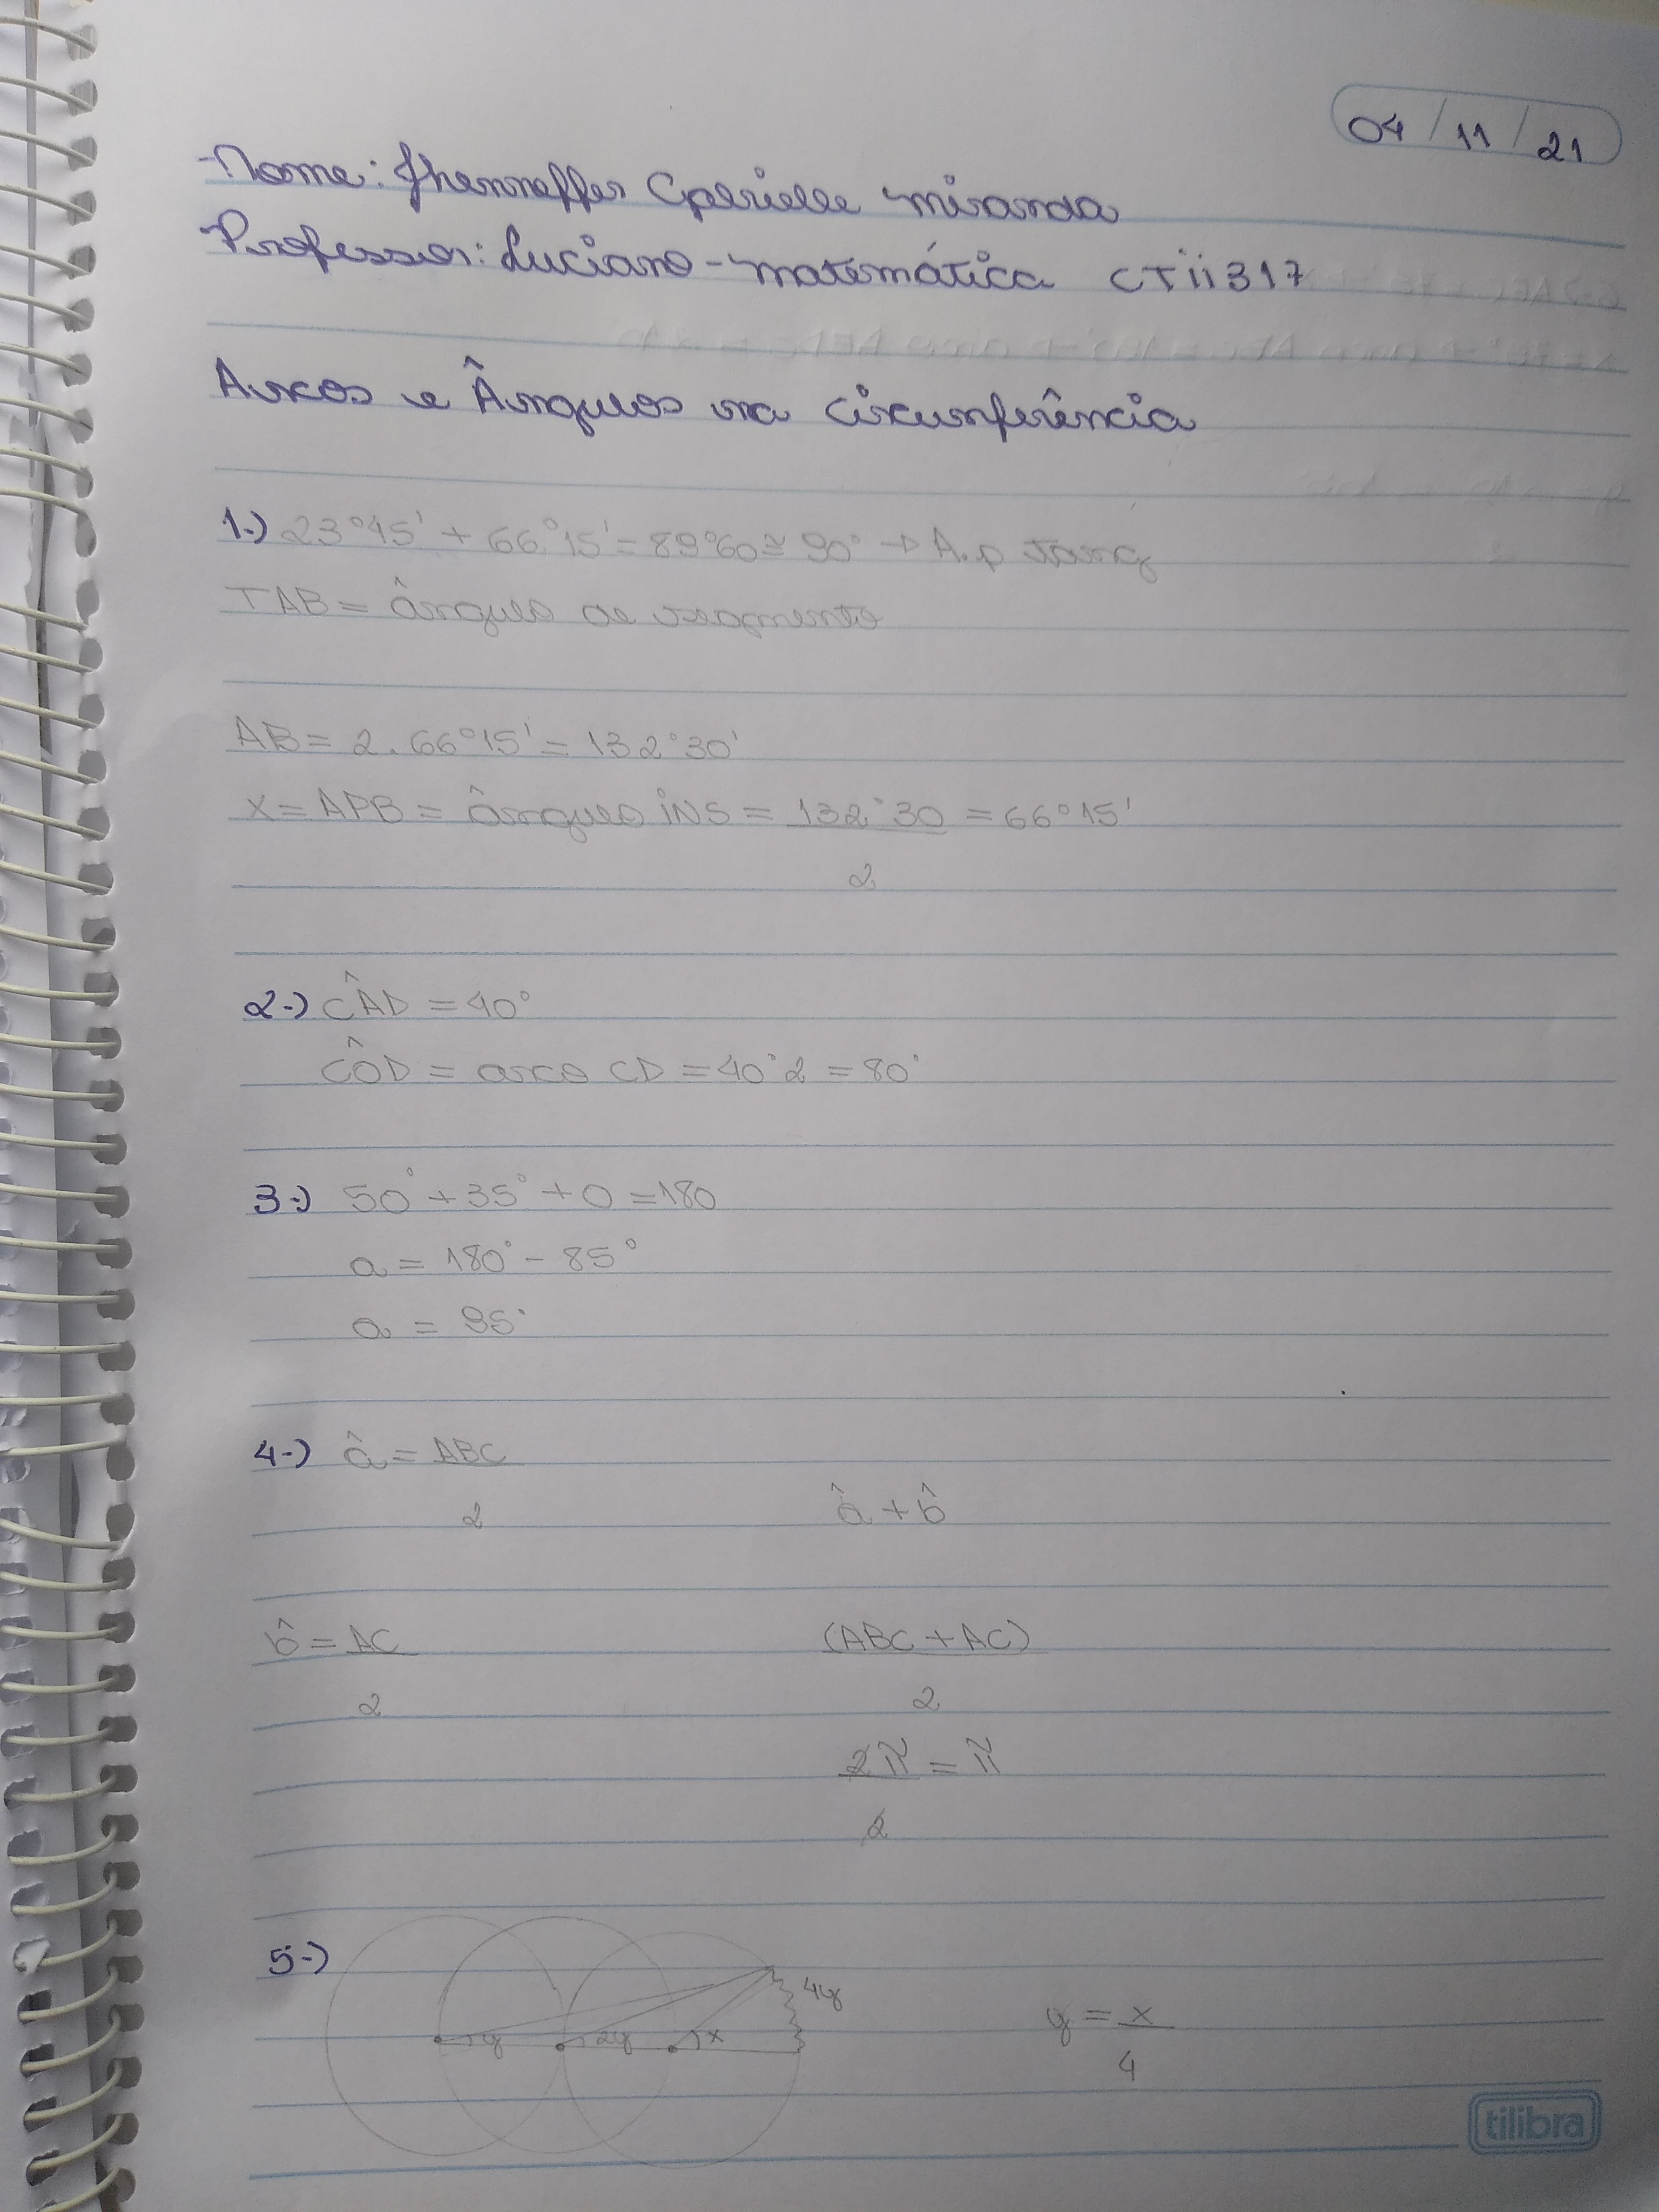 04/11/21
Nome: Jhenneffer Gabrielle Miranda
Professor: Luciano - matemática CTii317
Arcos e Ângulos na circunferência
1-) 23°45' + 66°15' = 89°60 ≅ 90° → A.p tang
TAB = ângulo de segmento
AB = 2 . 66°15' = 132°30'
X = APB = ângulo iNS = 132°30 = 66°15'
2
2-) CÂD = 40°
CÔD = arco CD = 40°2 = 80°
3-) 50° + 35° + 0 = 180
a = 180° - 85°
a = 95°
4-) â = ABC
2
â + b̂
b̂ = AC
2
(ABC + AC)
2
2π = π
2
5-)
4y
y 2y x
y = x
4
tilibra